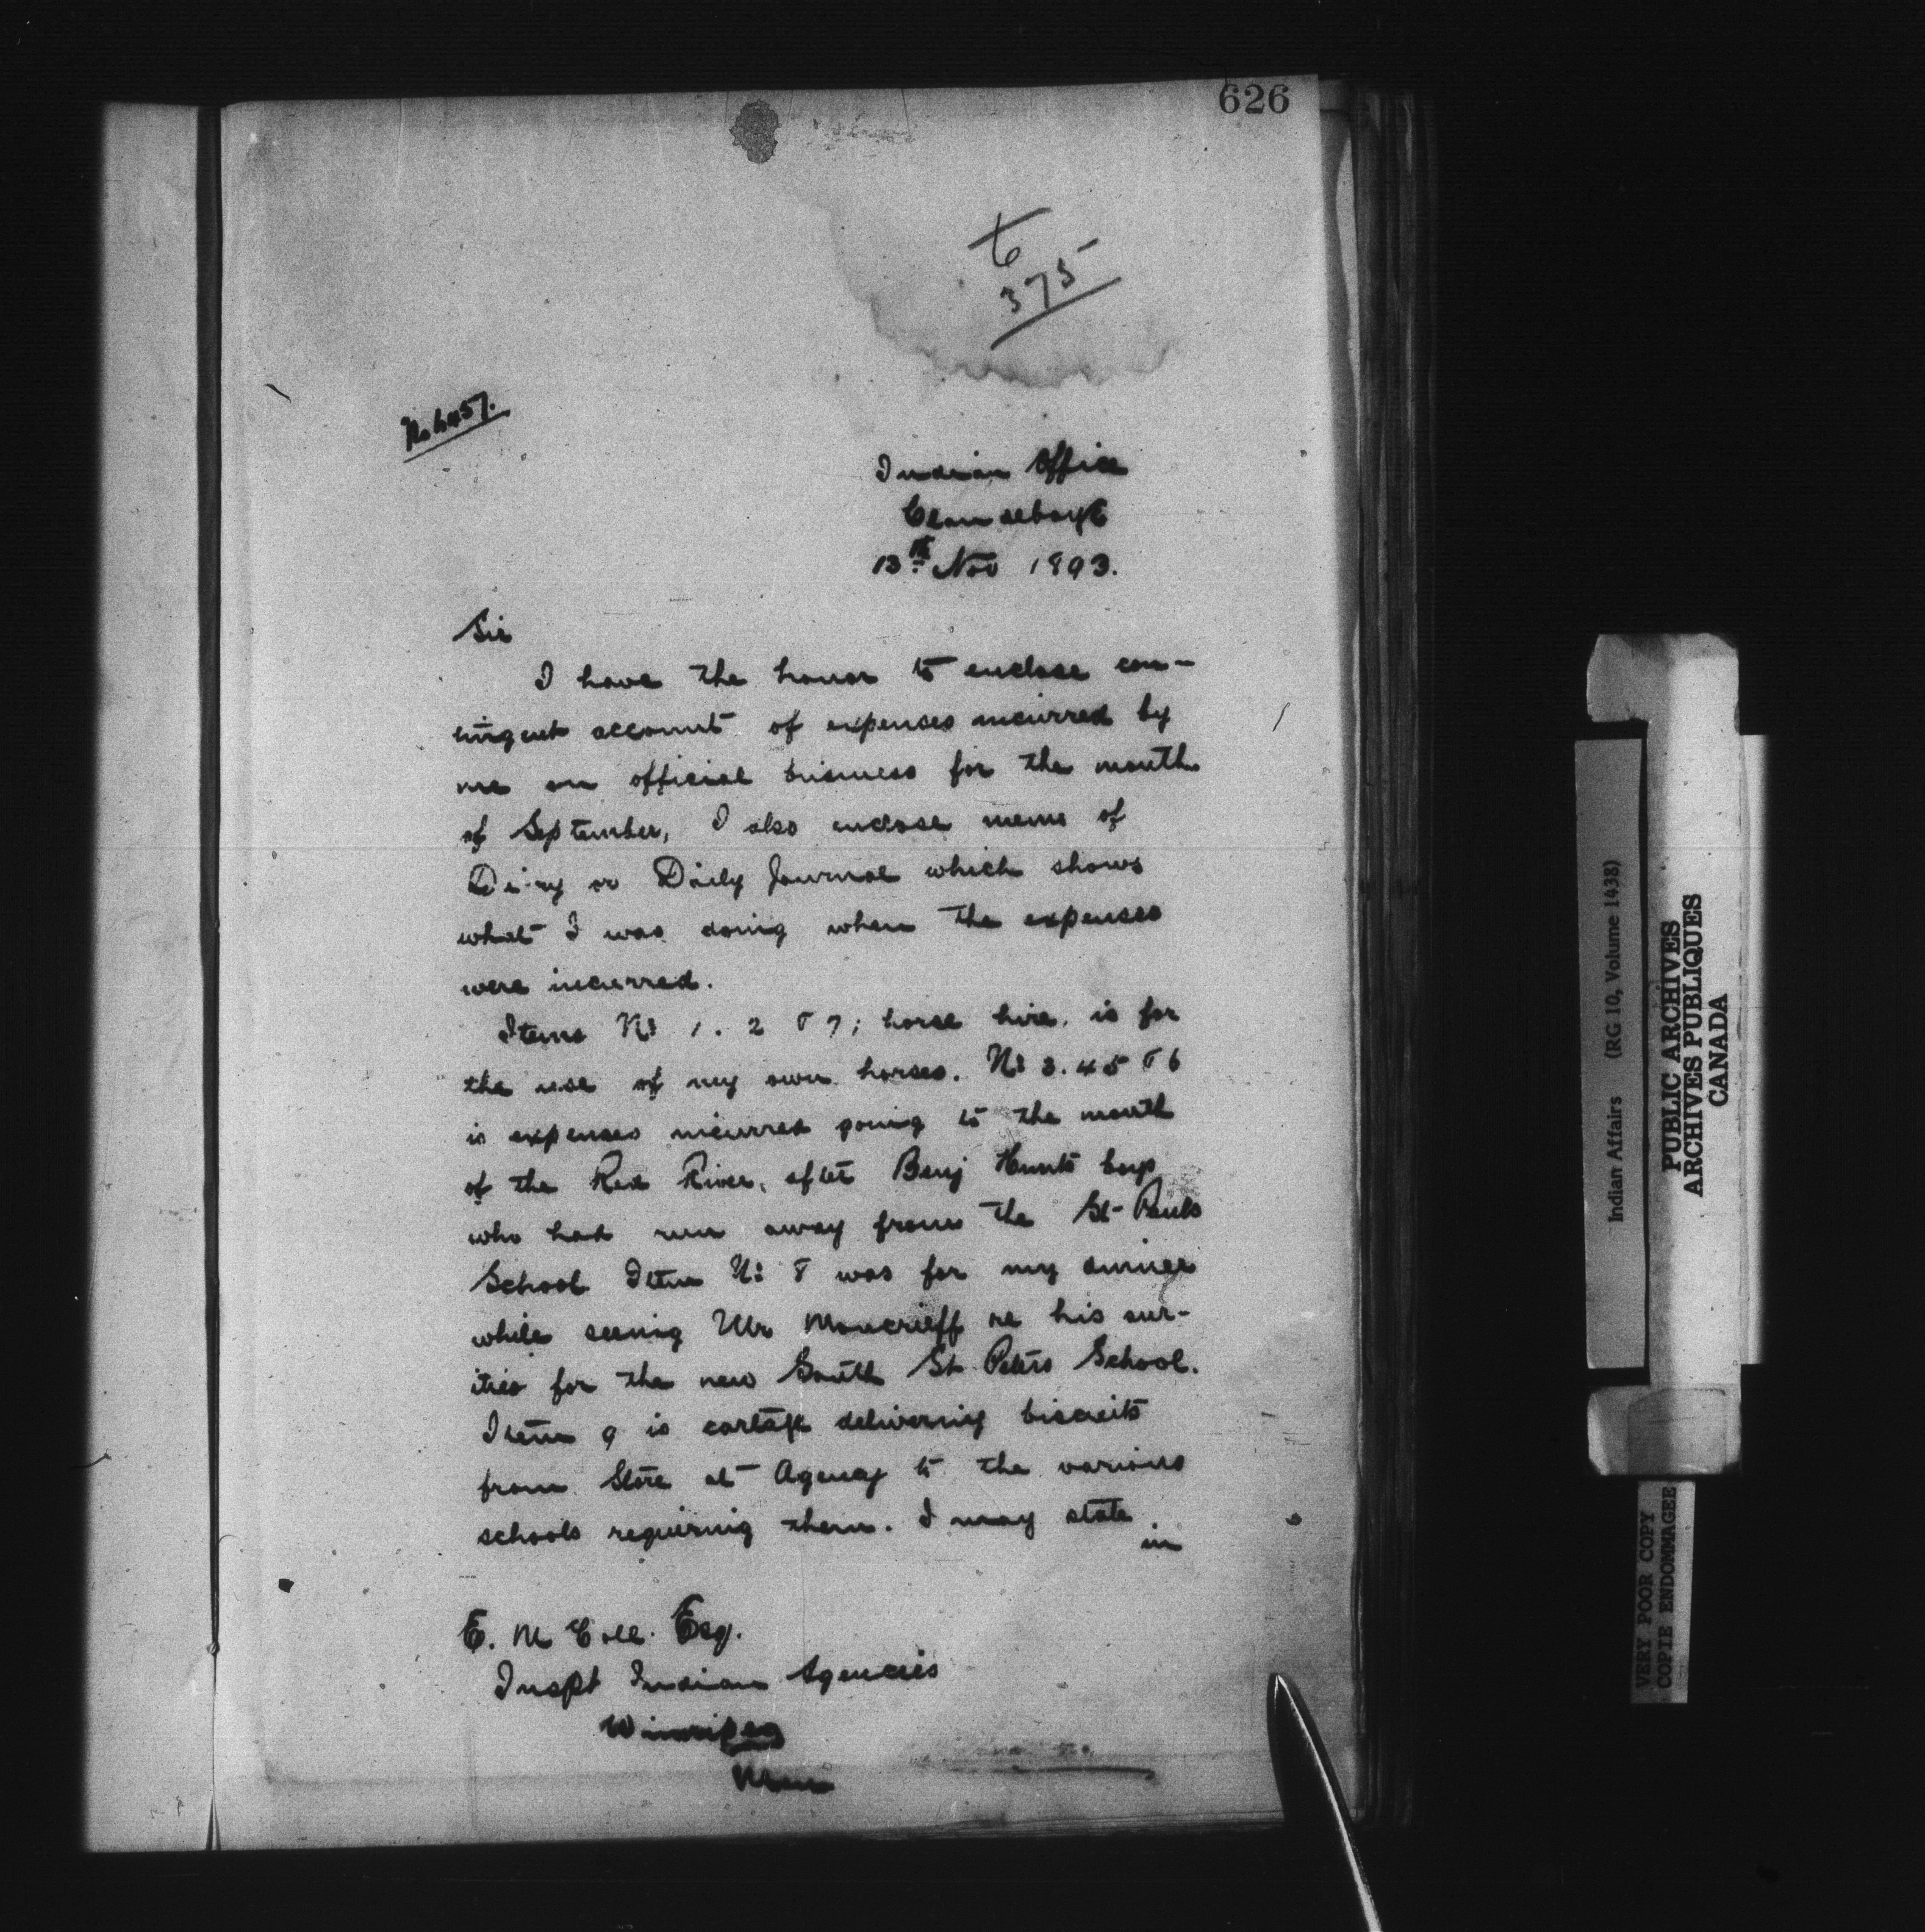 626
to
375
No 6457.
Indian Office
Clandeboye
13th Nov 1893.
Sir
I have the honor to enclose con-
tingent account of expenses incurred by
me on official business for the month
of September, I also enclose memo of
Diary or Daily Journal which shows
what I was doing when the expenses
were incurred.
Items No 1. 2 & 7; horse hire, is for
the use of my own horses. No 3. 4 5 & 6
is expenses incurred going to the mouth
of the Red River, after Benj Hunts boys
who had run away from the St Pauls
School. Item No 8 was for my dinner
while seeing Mr Moncrieff re his sur-
ities for the new South St Peters School.
Item 9 is cartage delivering biscuits
from Store at Agency to the various
schools requiring them. I may state
in
E. McColl. Esq.
Inspt Indian Agencies
Winnipeg
Man
Indian Affairs (RG 10, Volume 1438)
PUBLIC ARCHIVES
ARCHIVES PUBLIQUES
CANADA
VERY POOR COPY
COPIE ENDOMMAGEE